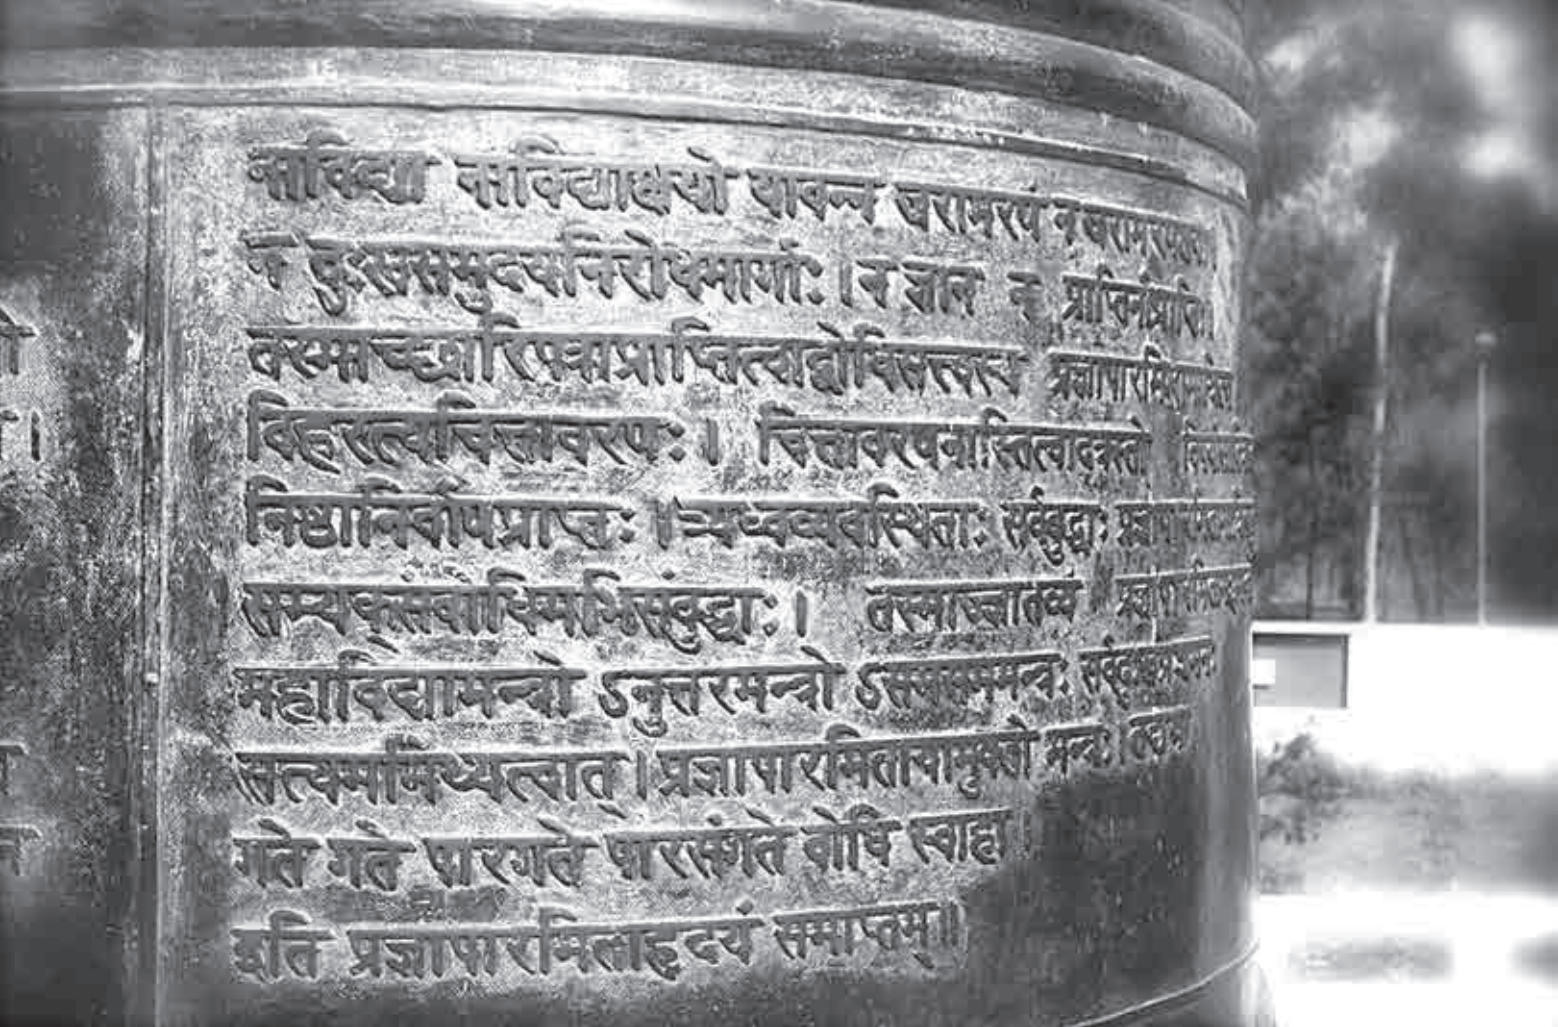 नाविद्या नाविद्याक्षयो यावन्न जरामरणं न जरामरणक्षयो
न दुःखसमुदयनिरोधमार्गाः । न ज्ञानं न प्राप्तिर्नाप्राप्तिः
तस्माच्छारिपुत्राप्राप्तित्वाद्बोधिसत्त्वस्य प्रज्ञापारमितामाश्रित्य
विहरत्यचित्तावरणः । चित्तावरणनास्तित्वादत्रस्तो
निष्ठानिर्वाणप्राप्तः । त्र्यध्वव्यवस्थिताः सर्वबुद्धाः
सम्यक्संबोधिमभिसंबुद्धाः । तस्माज्ज्ञातव्यं
महाविद्यामन्त्रो ऽनुत्तरमन्त्रो ऽसमसममन्त्रः
सत्यममिथ्यत्वात् । प्रज्ञापारमितायामुक्तो मन्त्रः तद्यथा
गते गते पारगते पारसंगते बोधि स्वाहा ।
इति प्रज्ञापारमिताहृदयं समाप्तम् ॥